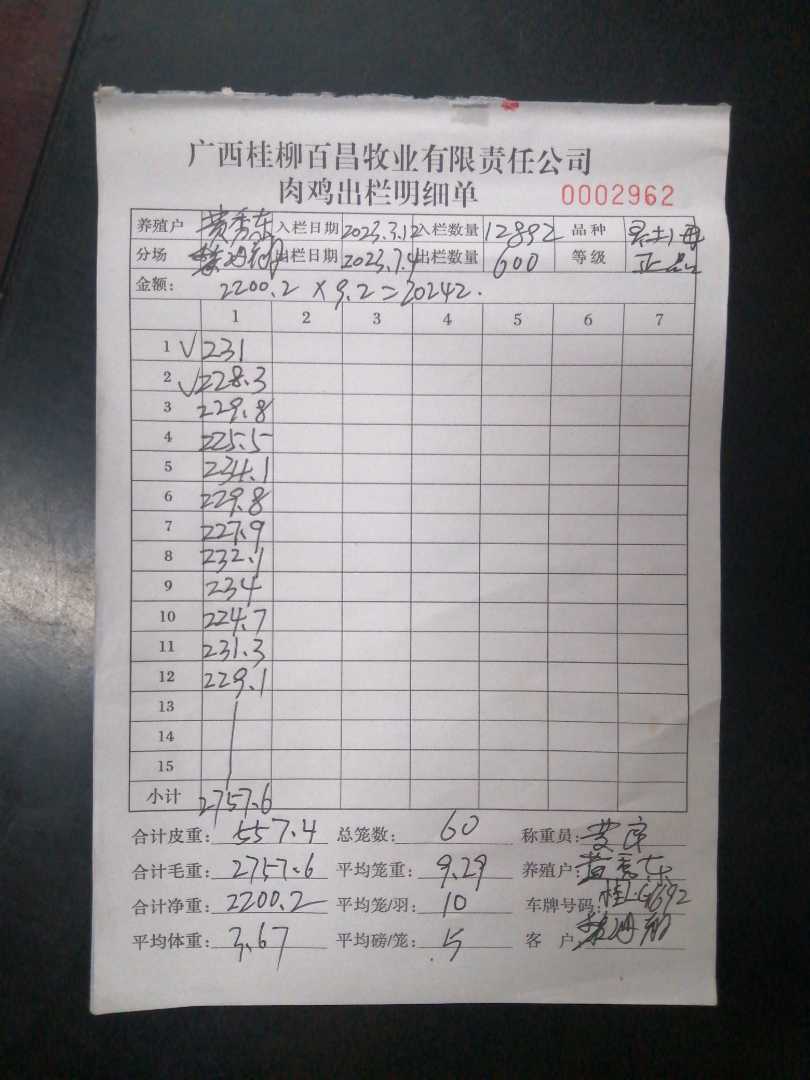 广西桂柳百昌牧业有限责任公司
肉鸡出栏明细单 0002962
养殖户 黄秀东 入栏日期 2023.3.12 入栏数量 12892 品种
分场 出栏日期 2023.7.4 出栏数量 600 等级 正品
金额: 2200.2 × 9.2 = 20242.
1 2 3 4 5 6 7
1 √ 231
2 √ 228.3
3 229.8
4 225.5
5 234.1
6 229.8
7 227.9
8 232.1
9 234
10 224.7
11 231.3
12 229.1
13
14
15
小计 2757.6
合计皮重: 557.4 总笼数: 60 称重员:
合计毛重: 2757.6 平均笼重: 9.29 养殖户: 黄秀东
合计净重: 2200.2 平均笼/羽: 10 车牌号码:
平均体重: 3.67 平均磅/笼: 5 客 户